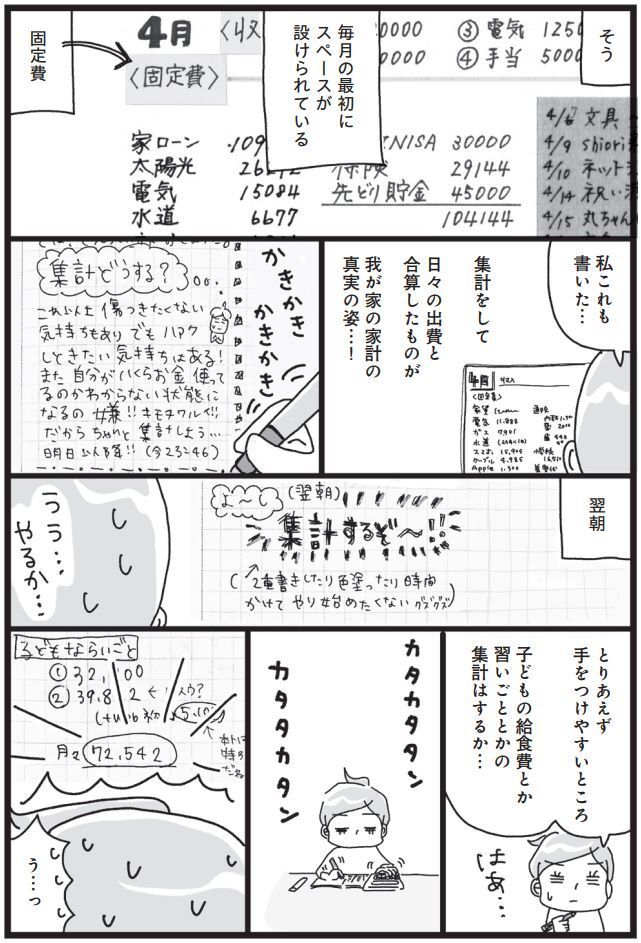 そう
毎月の最初に
スペースが
設けられている
固定費
4月
〈収
0000
0000
③電気 1250
④手当 5000
〈固定費〉
家ローン
太陽光
電気 15084
水道 6677
NISA 30000
保険 29144
先どり貯金 45000
104144
文具
4/9 shiori
4/10 ネット
4/14 祝い
4/15 丸ちゃん
私これも
書いた…
集計をして
日々の出費と
合算したものが
我が家の家計の
真実の姿…!
4月
〈固定費〉
家賃
電気 11.888
ガス 7901
水道
スマホ 15,905
ケーブル 4.985
Apple 1.300
かきかき
かきかき
集計どうする?
これ以上傷つきたくない
気持ちもあり でもハアク
しときたい気持ちはある!
また自分がいくらお金使って
るのかわからない状態に
なるの嫌!! キモチワルイ!!
だからちゃんと集計しよう…
明日以降!!(今23:46)
翌朝
よ〜し(翌朝)
集計するぞ〜!!
(2重書きしたり色塗ったり時間
かけてやり始めたくない グズグズ)
うう…
やるか…
とりあえず
手をつけやすいところ
子どもの給食費とか
習いごととかの
集計はするか…
はぁ…
カタカタタン
カタタカタン
子どもならいごと
①
②
月々 72,542
う…っ